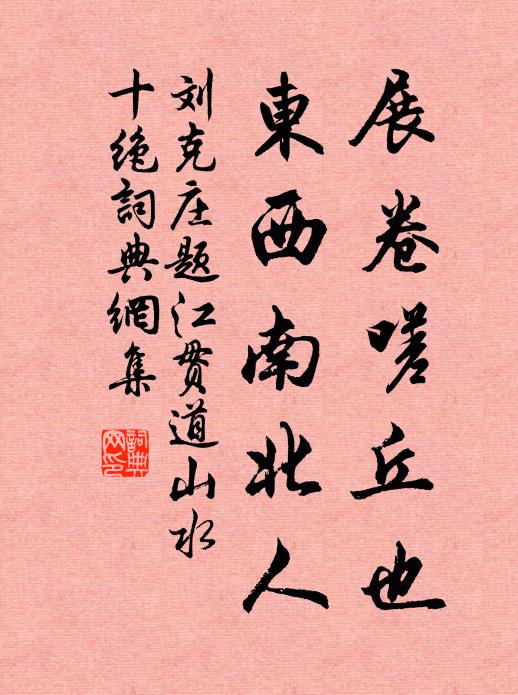 展卷嗟丘也
東西南北人
刘克庄题江贯道山水
十绝詞典網集
詞典網印